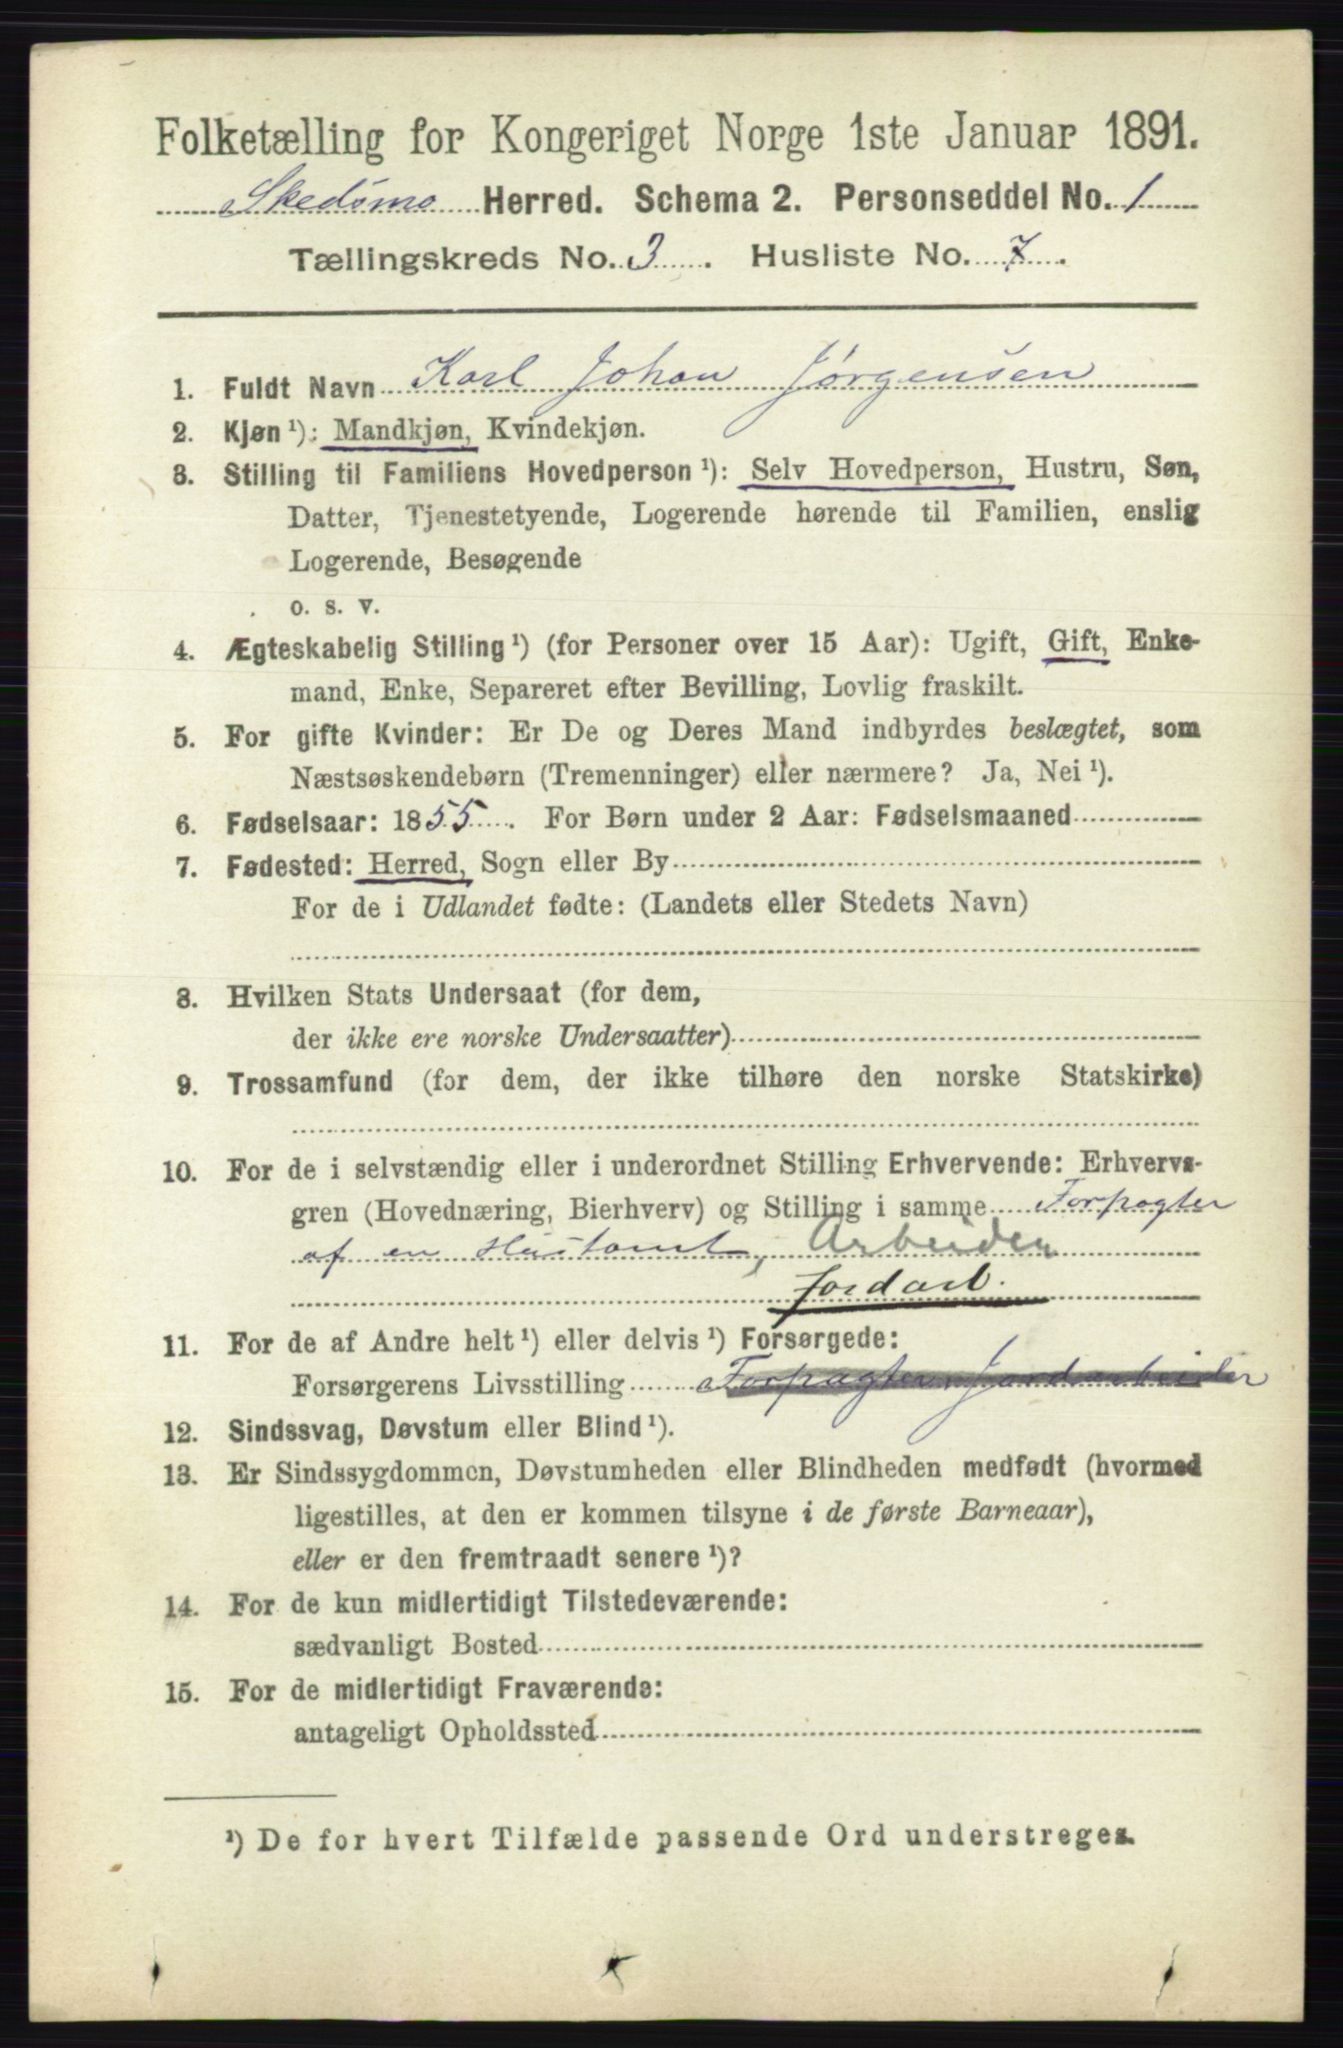 Folketælling for Kongeriget Norge 1ste Januar 1891.
Skedsmo Herred. Schema 2. Personseddel No. 1
Tællingskreds No. 3. Husliste No. 7.
1. Fuldt Navn Karl Johan Jørgensen
2. Kjøn ¹): Mandkjøn, Kvindekjøn.
3. Stilling til Familiens Hovedperson ¹): Selv Hovedperson, Hustru, Søn,
Datter, Tjenestetyende, Logerende hørende til Familien, enslig
Logerende, Besøgende
o. s. v.
4. Ægteskabelig Stilling ¹) (for Personer over 15 Aar): Ugift, Gift, Enke-
mand, Enke, Separeret efter Bevilling, Lovlig fraskilt.
5. For gifte Kvinder: Er De og Deres Mand indbyrdes beslægtet, som
Næstsøskendebørn (Tremenninger) eller nærmere? Ja, Nei ¹).
6. Fødselsaar: 1855. For Børn under 2 Aar: Fødselsmaaned
7. Fødested: Herred, Sogn eller By
For de i Udlandet fødte: (Landets eller Stedets Navn)
8. Hvilken Stats Undersaat (for dem,
der ikke ere norske Undersaatter)
9. Trossamfund (for dem, der ikke tilhøre den norske Statskirke)
10. For de i selvstændig eller i underordnet Stilling Erhvervende: Erhvervs-
gren (Hovednæring, Bierhverv) og Stilling i samme Forpagter
af en Hustomt, Arbeider
Jordarb.
11. For de af Andre helt ¹) eller delvis ¹) Forsørgede:
Forsørgerens Livsstilling Forpagter, Jordarbeider
12. Sindssvag, Døvstum eller Blind ¹).
13. Er Sindssygdommen, Døvstumheden eller Blindheden medfødt (hvormed
ligestilles, at den er kommen tilsyne i de første Barneaar),
eller er den fremtraadt senere ¹)?
14. For de kun midlertidigt Tilstedeværende:
sædvanligt Bosted
15. For de midlertidigt Fraværende:
antageligt Opholdssted
¹) De for hvert Tilfælde passende Ord understreges.